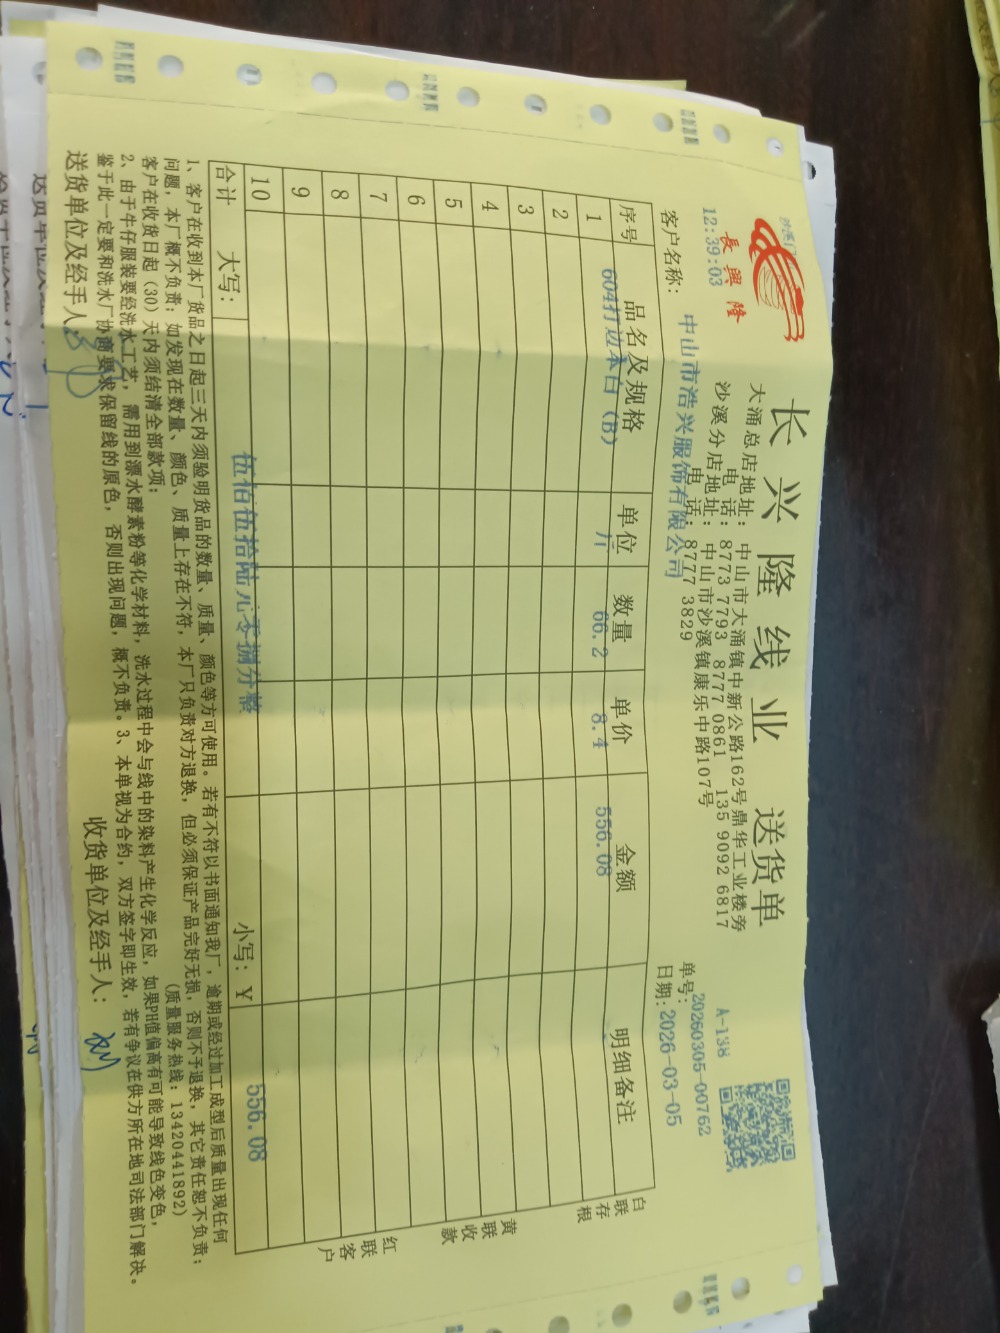 长兴隆线业 送货单
長興隆
12:39:03
大涌总店地址：中山市大涌镇中新公路162号鼎华工业楼旁
电 话：8773 7793 8777 0861 135 9092 6817
沙溪分店地址：中山市沙溪镇康乐中路107号
电 话：8777 3829
A-138
单号：20260305-00762
日期：2026-03-05
客户名称：中山市浩兴服饰有限公司
序号 品名及规格 单位 数量 单价 金额 明细备注
1 604打边本白（B） 斤 66.2 8.4 556.08
2
3
4
5
6
7
8
9
10
合计 大写：伍佰伍拾陆元零捌分整 小写：￥ 556.08
白联存根
黄联收款
红联客户
1、客户在收到本厂货品之日起三天内须验明货品的数量、质量、颜色等方可使用。若有不符以书面通知我厂，逾期或经过加工成型后质量出现任何
问题，本厂概不负责；如发现在数量、颜色、质量上存在不符，本厂只负责对方退换，但必须保证产品完好无损，否则不予退换，其它责任恕不负责；
客户在收货日起（30）天内须结清全部款项； （质量服务热线：13420441892）
2、由于牛仔服装要经洗水工艺，需用到漂水酵素粉等化学材料，洗水过程中会与线中的染料产生化学反应，如果PH值偏高有可能导致线色变色，
鉴于此一定要和洗水厂协商要求保留线的原色，否则出现问题，概不负责。3、本单视为合约，双方签字即生效，若有争议在供方所在地司法部门解决。
送货单位及经手人： 收货单位及经手人：